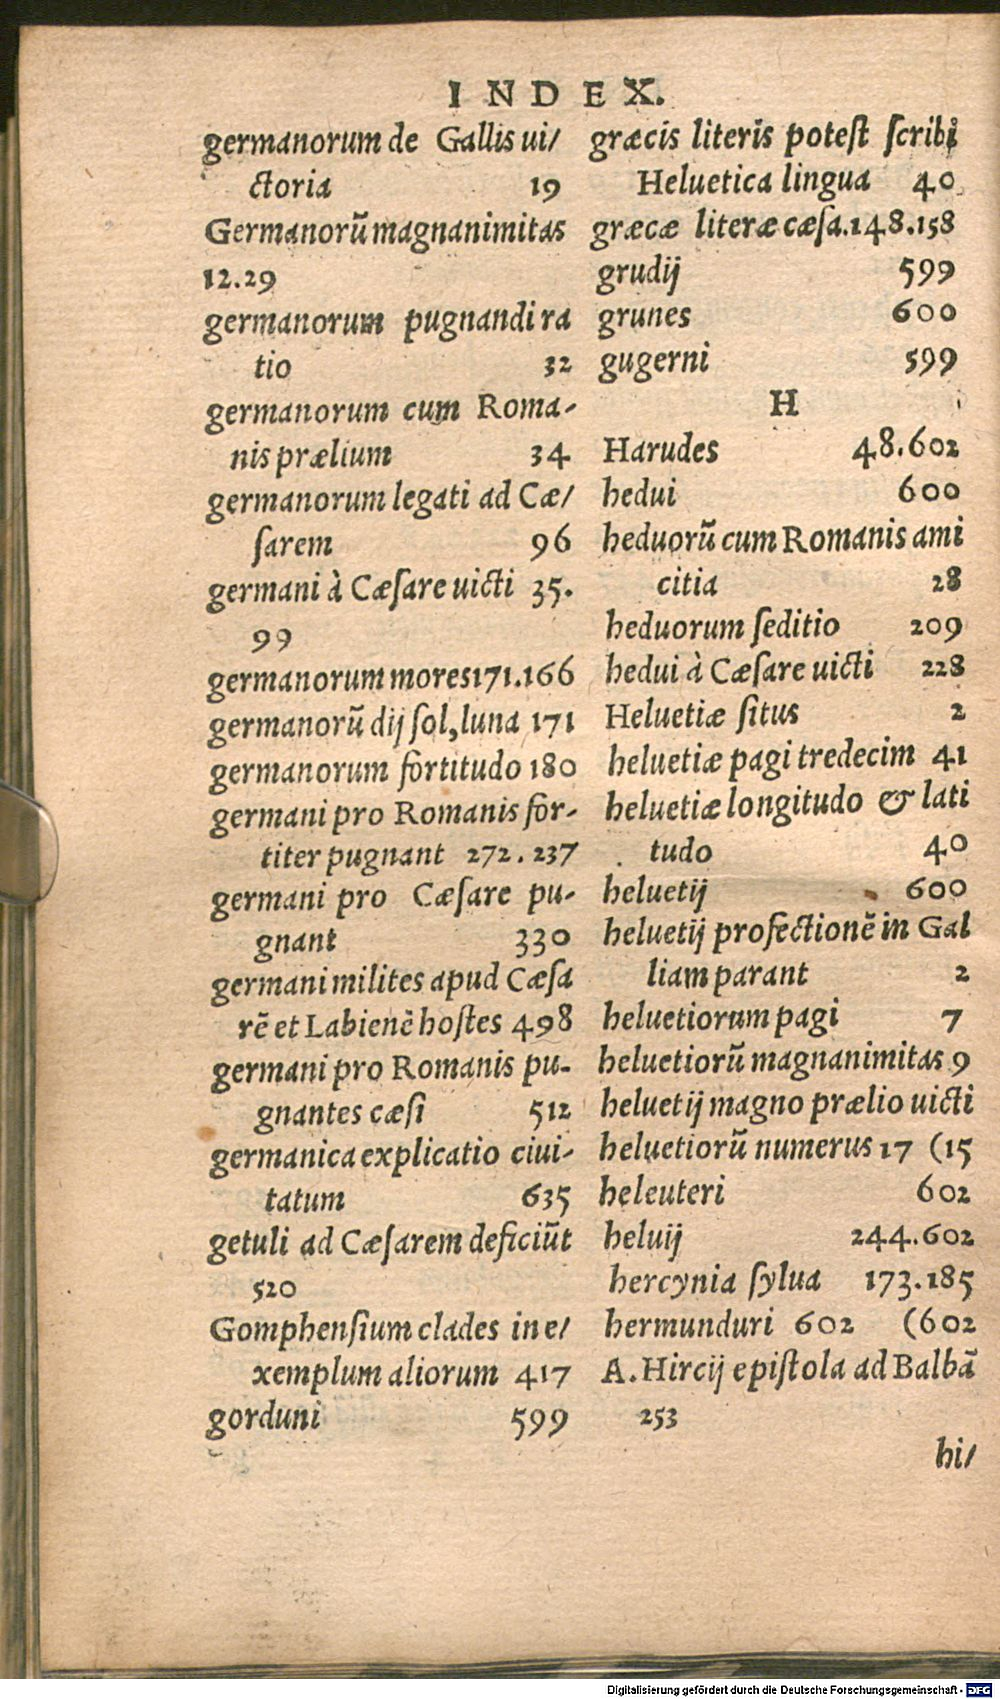 INDEX.
germanorum de Gallis ui/
ctoria 19
Germanorũ magnanimitas
12.29
germanorum pugnandi ra
tio 32
germanorum cum Roma-
nis prælium 34
germanorum legati ad Cæ/
ſarem 96
germani à Cæſare uicti 35.
99
germanorum mores 171.166
germanorũ dij ſol, luna 171
germanorum fortitudo 180
germani pro Romanis for-
titer pugnant 272.237
germani pro Cæſare pu-
gnant 330
germani milites apud Cæſa
rẽ et Labienẽ hoſtes 498
germani pro Romanis pu-
gnantes cæſi 512
germanica explicatio ciui-
tatum 635
getuli ad Cæſarem deficiũt
520
Gomphenſium clades in e/
xemplum aliorum 417
gorduni 599
græcis literis poteſt ſcribi
Heluetica lingua 40
græcæ literæ cæſa.148.158
grudij 599
grunes 600
gugerni 599
H
Harudes 48.602
hedui 600
heduorũ cum Romanis ami
citia 28
heduorum ſeditio 209
hedui à Cæſare uicti 228
Heluetiæ ſitus 2
heluetiæ pagi tredecim 41
heluetiæ longitudo & lati
tudo 40
heluetij 600
heluetij profectionẽ in Gal
liam parant 2
heluetiorum pagi 7
heluetiorũ magnanimitas 9
heluetij magno prælio uicti
heluetiorũ numerus 17 (15
heleuteri 602
heluij 244.602
hercynia ſylua 173.185
hermunduri 602 (602
A. Hircij epiſtola ad Balbã
253
hi/
Digitalisierung gefördert durch die Deutsche Forschungsgemeinschaft - DFG